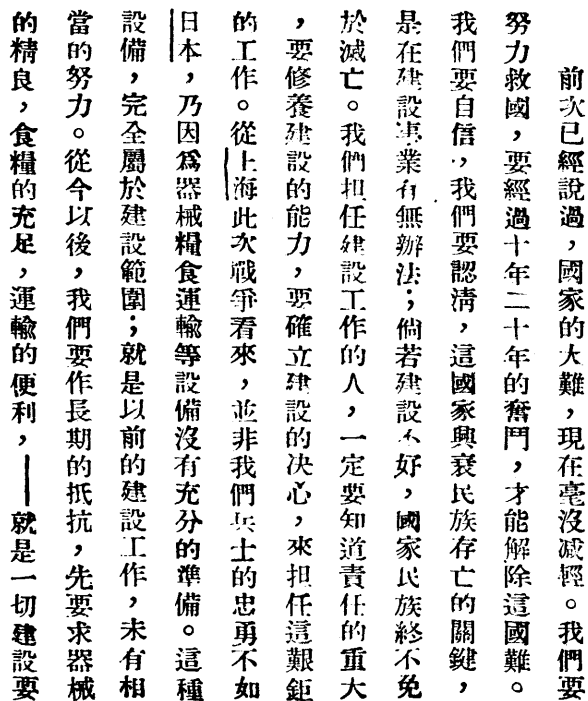 前次已經說過，國家的大難，現在毫沒減輕。我們要
努力救國，要經過十年二十年的奮鬥，才能解除這國難。
我們要自信，我們要認清，這國家興衰民族存亡的關鍵，
是在建設事業有無辦法；倘若建設不好，國家民族終不免
於滅亡。我們担任建設工作的人，一定要知道責任的重大
，要修養建設的能力，要確立建設的决心，來担任這艱鉅
的工作。從上海此次戰爭看來，並非我們兵士的忠勇不如
日本，乃因爲器械糧食運輸等設備沒有充分的準備。這種
設備，完全屬於建設範圍；就是以前的建設工作，未有相
當的努力。從今以後，我們要作長期的抵抗，先要求器械
的精良，食糧的充足，運輸的便利，——就是一切建設要